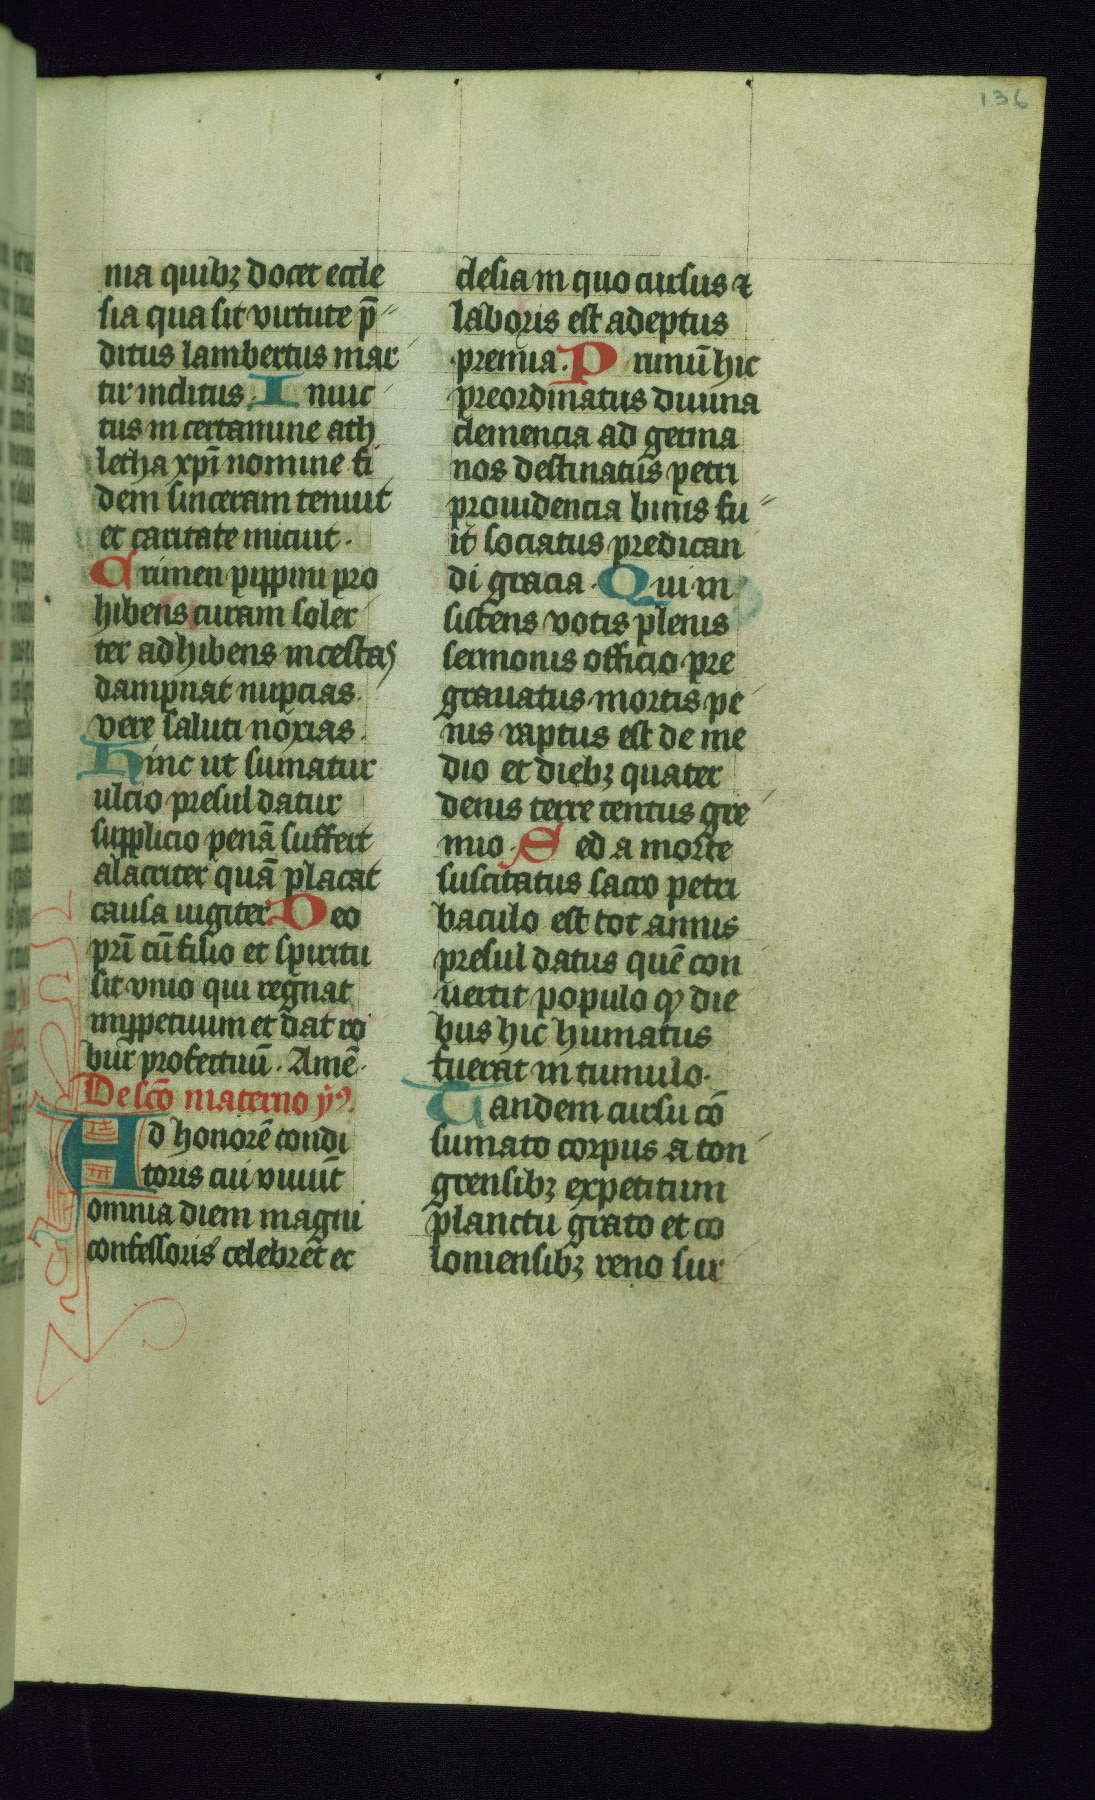 136
nia quibꝫ docet eccle
sia qua sit virtute p̄
ditus lambertus mar
tir inclitus. Inuic
tus in certamine ath
letha xp̄i nomine fi
dem sinceram tenuit
et caritate micuit.
Crimen pippini pro
hibens curam soler
ter adhibens incestas
dampnat nupcias.
vere saluti noxias.
Hinc ut sumatur
ulcio presul datur
supplicio penā suffert
alacriter quā placat
causa iugiter. Deo
pr̄i cū filio et spiritu
sit vnio qui regnat
inp̱petuum et dat ro
bur profectiuū. Amē.
De sc̄o materno ẏꝰ.
Ad honorē condi
toris cui viuūt
omnia diem magni
confessoris celebrēt ec
clesia in quo cursus ⁊
laboris est adeptus
premia. Primū hic
preordinatus diuina
clemencia ad germa
nos destinatus petri
prouidencia binis fu
it sociatus predican
di gracia. Qui in
sistens votis plenis
sermonis officio pre
grauatus mortis pe
nis raptus est de me
dio et diebꝫ quater
denis terre tentus gre
mio. Sed a morte
suscitatus sacro petri
baculo est tot annis
presul datus quē con
uertit populo qͦ die
bus hic humatus
fuerat in tumulo.
Tandem cursu cō
sumato corpus a ton
grensibꝫ expetitum
planctu grato et co
loniensibꝫ reno sur